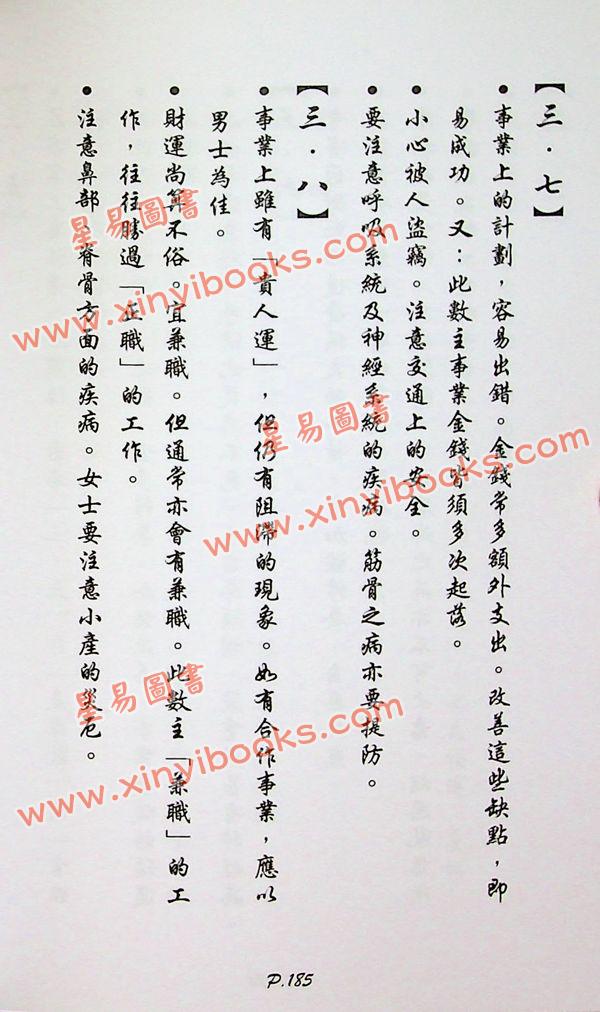 【三．七】
●事業上的計劃，容易出錯。金錢常多額外支出。改善這些缺點，即
易成功。又：此數主事業金錢皆須多次起落。
●小心被人盜竊。注意交通上的安全。
●要注意呼吸系統及神經系統的疾病。筋骨之病亦要提防。
【三．八】
●事業上雖有「貴人運」，但仍有阻滯的現象。如有合作事業，應以
男士為佳。
●財運尚算不俗。宜兼職。但通常亦會有兼職。此數主「兼職」的工
作，往往勝過「正職」的工作。
●注意鼻部、脊骨方面的疾病。女士要注意小產的災厄。
P.185
星易圖書
www.xinyibooks.com
星易圖書
www.xinyibooks.com
星易圖書
www.xinyibooks.com